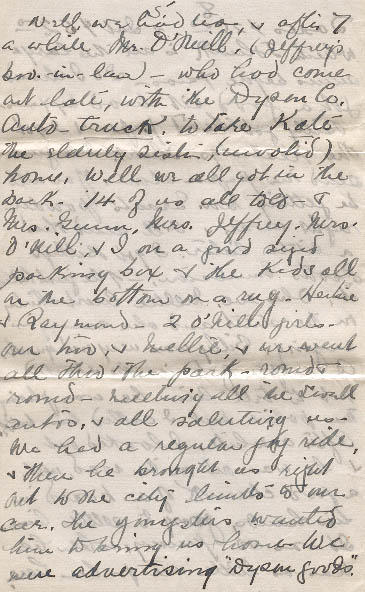 5
Well we had tea, & after 7
a while Mr. O'Neill, (Jeffrey's
bro.-in-law) - who had come
out late, with the Dyson Co.
Auto-truck. to take Kate
the elderly sister, (invalid)
home. Well we all got in the
back. 14 of us all told - &
Mrs. Gunn, Mrs. Jeffrey, Mrs.
O'Neill, & I on a good sized
packing box & the kids all
on the bottom on a rug.
& Raymond - 2 O'Neill girls -
our two, & Nellie & we went
all thro' the park - round &
round - meeting all the swell
autos, & all saluting us -
We had a regular joy ride,
& then he brought us right
out to the city limits to our
car. The youngsters wanted
him to bring us home - We
were advertising "Dyson goods".